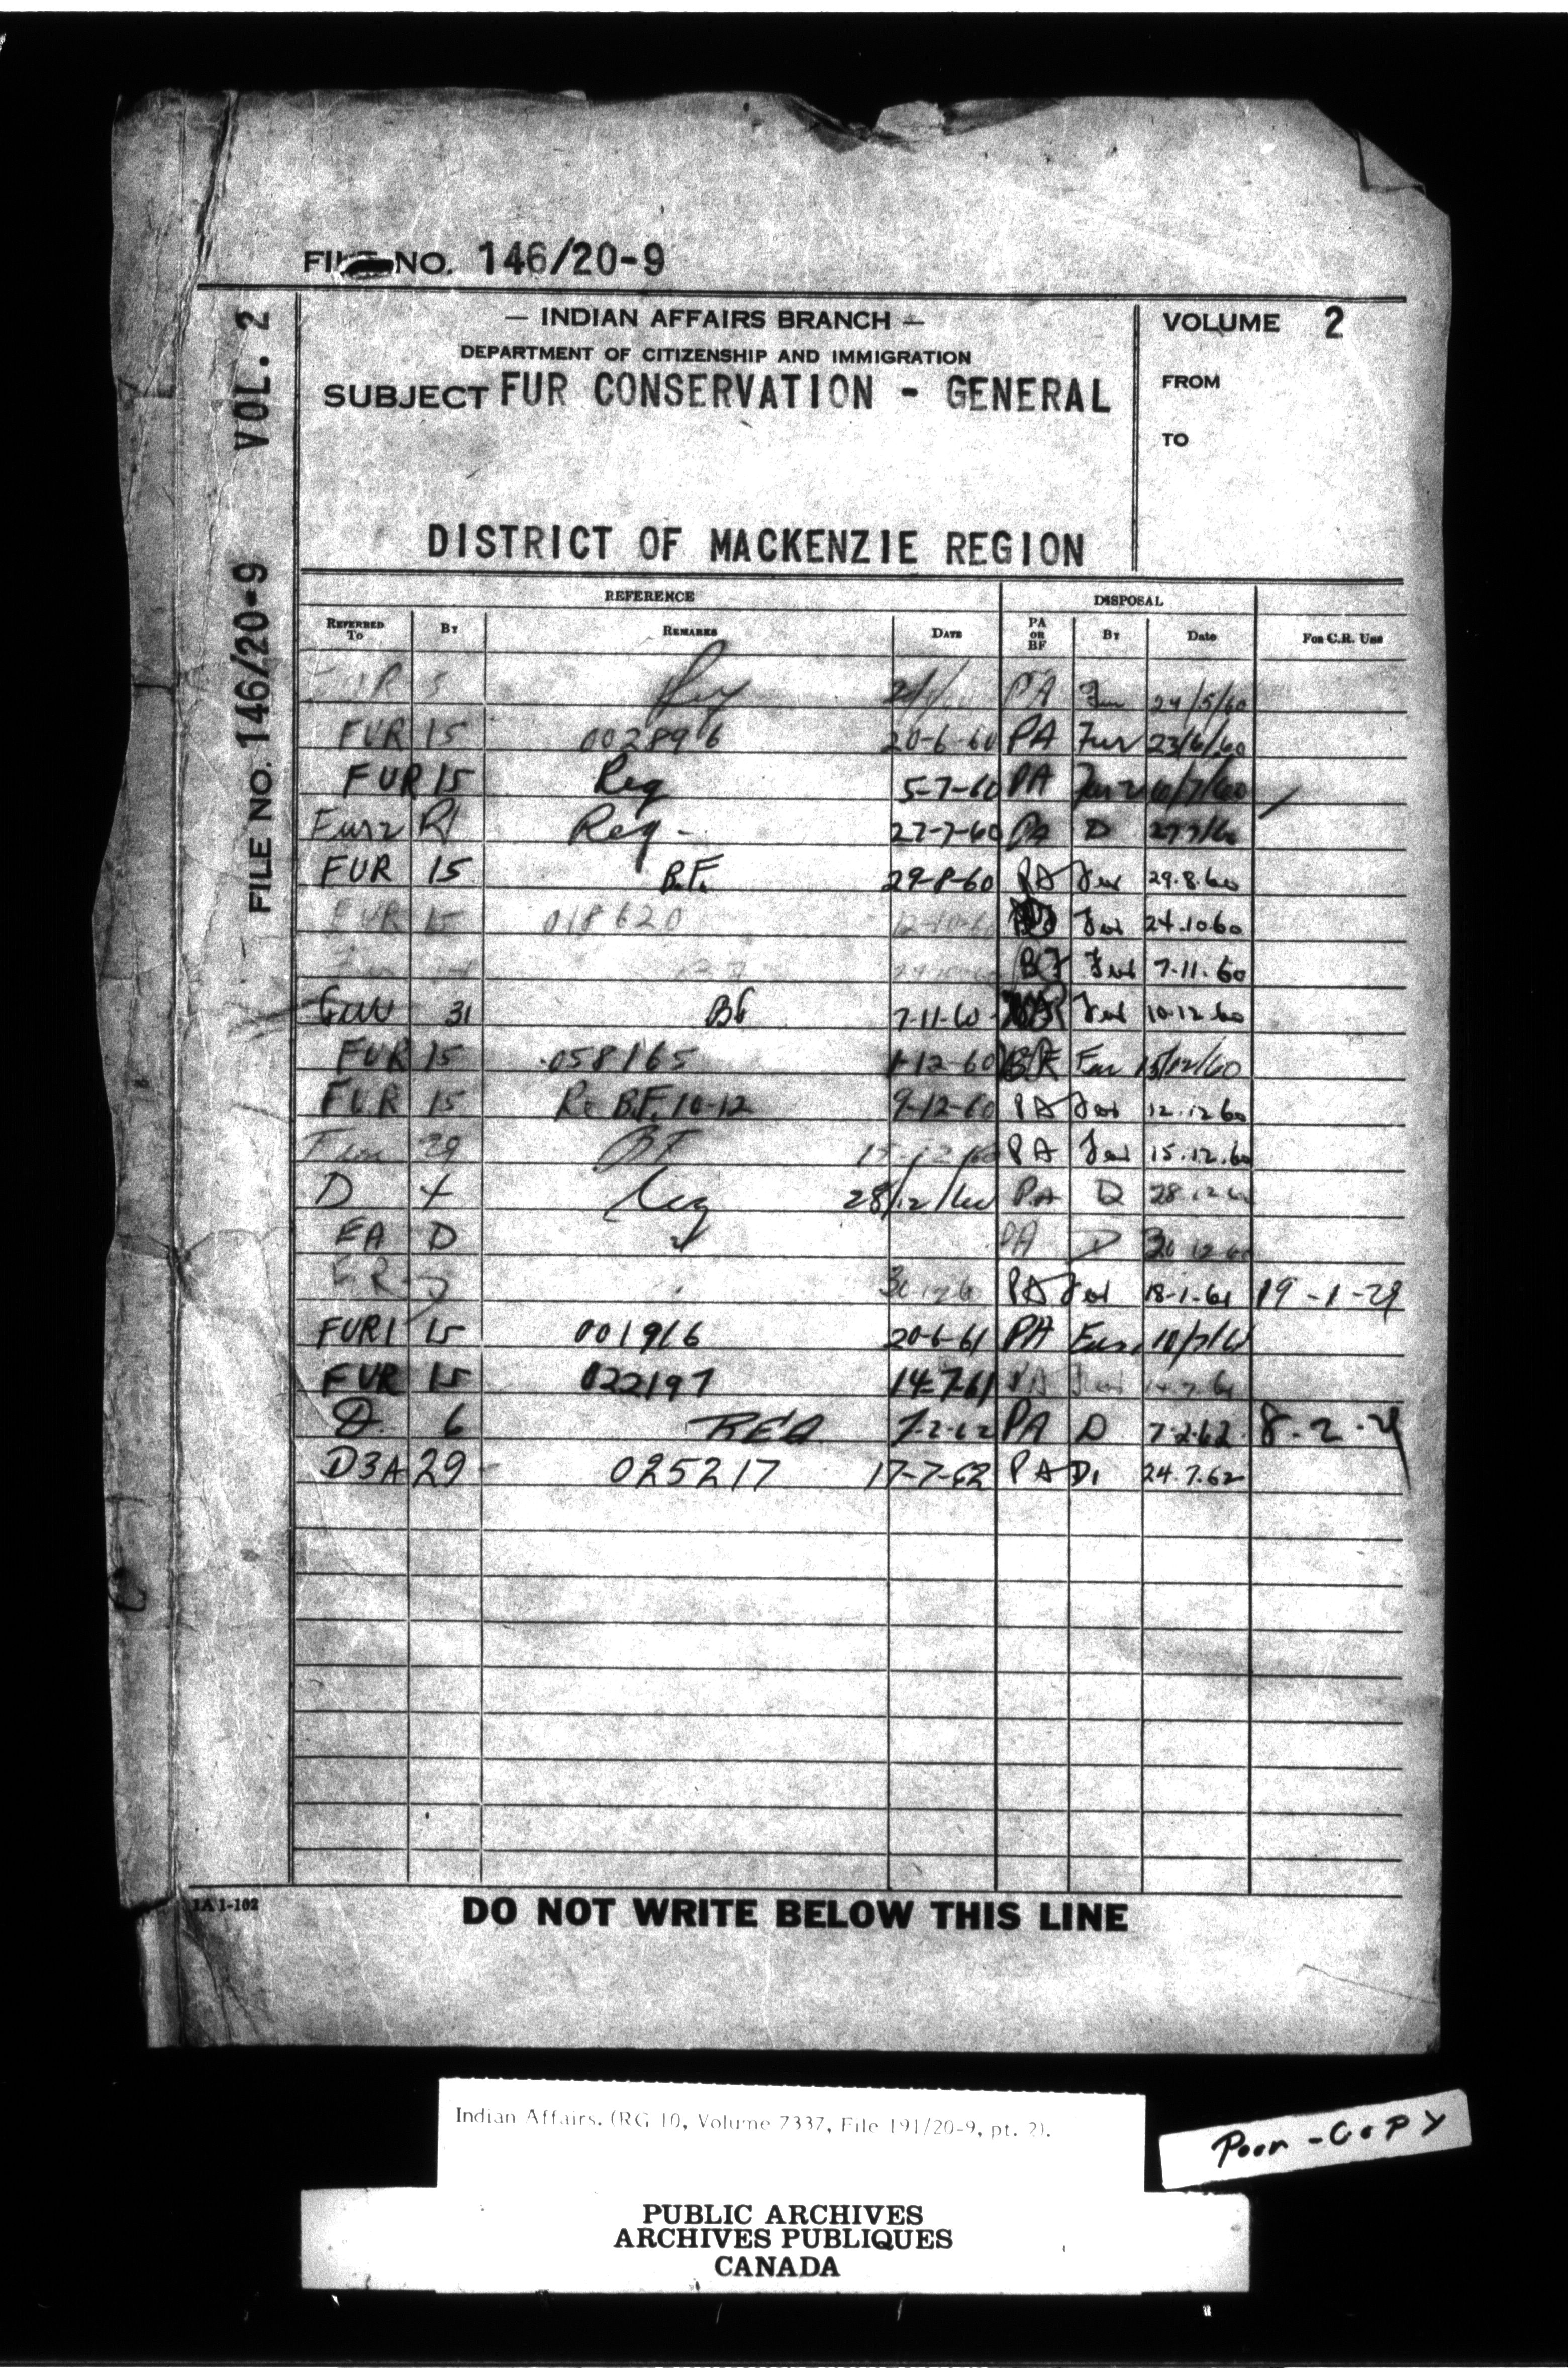 FILE NO. 146/20-9
— INDIAN AFFAIRS BRANCH —
DEPARTMENT OF CITIZENSHIP AND IMMIGRATION
SUBJECT FUR CONSERVATION - GENERAL
DISTRICT OF MACKENZIE REGION
VOLUME 2
FROM
TO
FILE NO. 146/20-9 VOL. 2
REFERENCE DISPOSAL
REFERRED TO BY REMARKS DATE PA OR BF BY Date FOR C.R. USE
PA Fur 24/5/60
FUR 15 002896 20-6-60 PA Fur 23/6/60
FUR 15 Req 5-7-60 PA
Fur2 R1 Req - 27-7-60 PA D
FUR 15 B.F. 29-8-60 PA Fur 29.8.60
FUR 15 018620 Fur 24.10.60
BF Fur 7.11.60
31 BF 7-11-60 Fur 10.12.60
FUR 15 058165 1-12-60 BF Fur 15/12/60
FUR 15 Re B.F. 10-12 9-12-60 PA Fur 12.12.60
Fur 29 BF PA Fur 15.12.60
D Req 28/12/60 PA D 28.12.60
EA D PA D 30.12.60
PA Fur 18-1-61 19-1-
FUR1 15 001916 20-6-61 PA Fur
FUR 15 022197 14-7-61 PA Fur
D. 6 REQ 7-2-62 PA D 7-2-62 8-2-
D3A 29 025217 17-7-62 PA D1 24.7.62
IA 1-102
DO NOT WRITE BELOW THIS LINE
Indian Affairs. (RG 10, Volume 7337, File 191/20-9, pt. 2).
Poor - COPY
PUBLIC ARCHIVES
ARCHIVES PUBLIQUES
CANADA